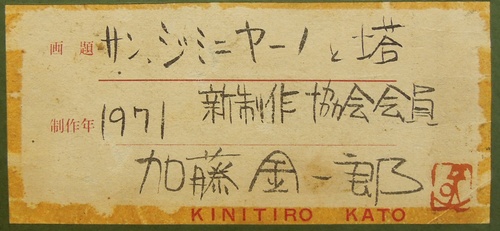 画題 サン、シジミニャーノと塔
制作年 1971 新制作協会会員
加藤金一郎
KINITIRO KATO